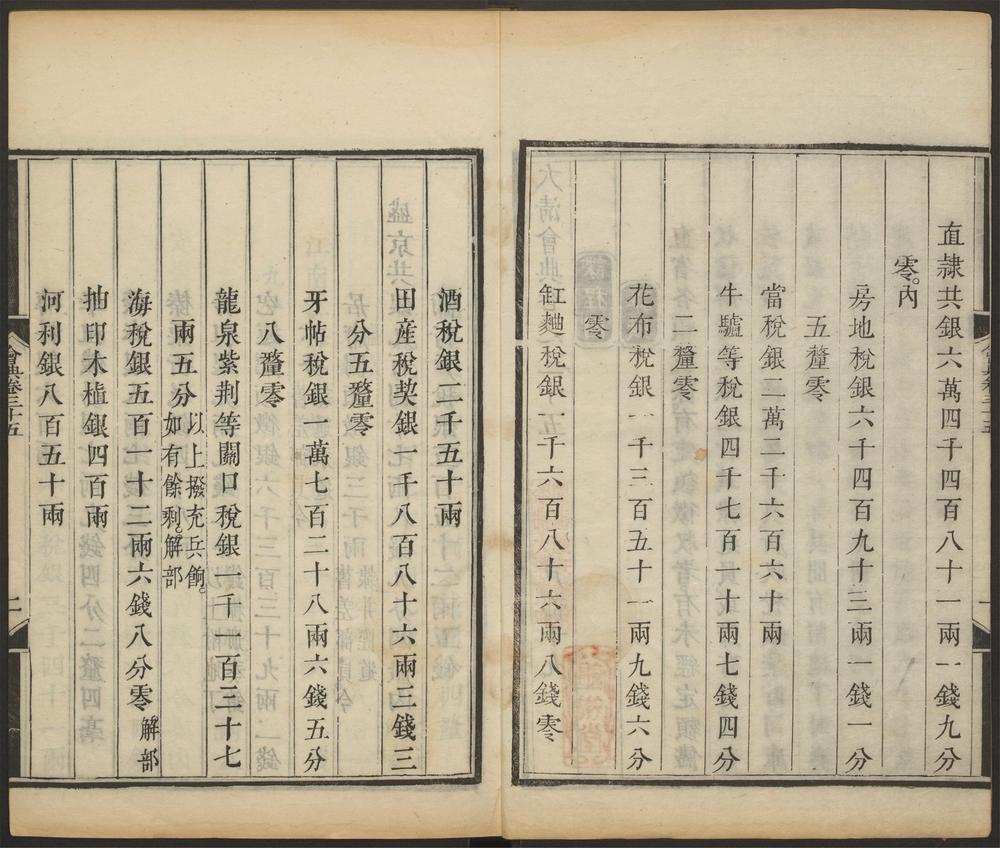 直隸共銀六萬四千四百八十一兩一錢九分
零。內
房地稅銀六千四百九十三兩一錢一分
五釐零
當稅銀二萬二千六百六十兩
牛驢等稅銀四千七百一十兩七錢四分
二釐零
花布稅銀一千三百五十一兩九錢六分
零
缸麯稅銀一千六百八十六兩八錢零
酒稅銀二千五十兩
田產稅契銀一千八百八十六兩三錢三
分五釐零
牙帖稅銀一萬七百二十八兩六錢五分
八釐零
龍泉紫荆等關口稅銀一千一百三十七
兩五分以上撥充兵餉。
如有餘剩。解部
海稅銀五百一十二兩六錢八分零解部
抽印木植銀四百兩
河利銀八百五十兩
會典卷三十五
二